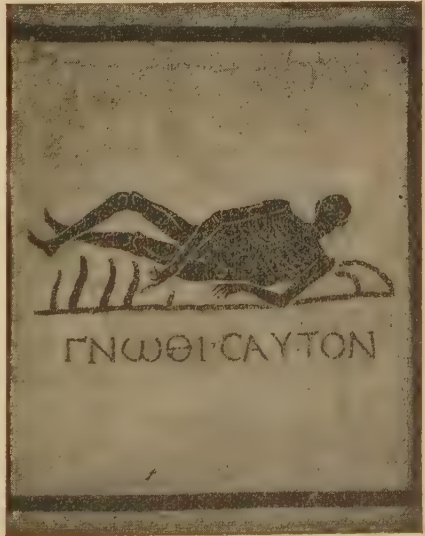 ΓΝΩΘΙ·CΑΥΤΟΝ